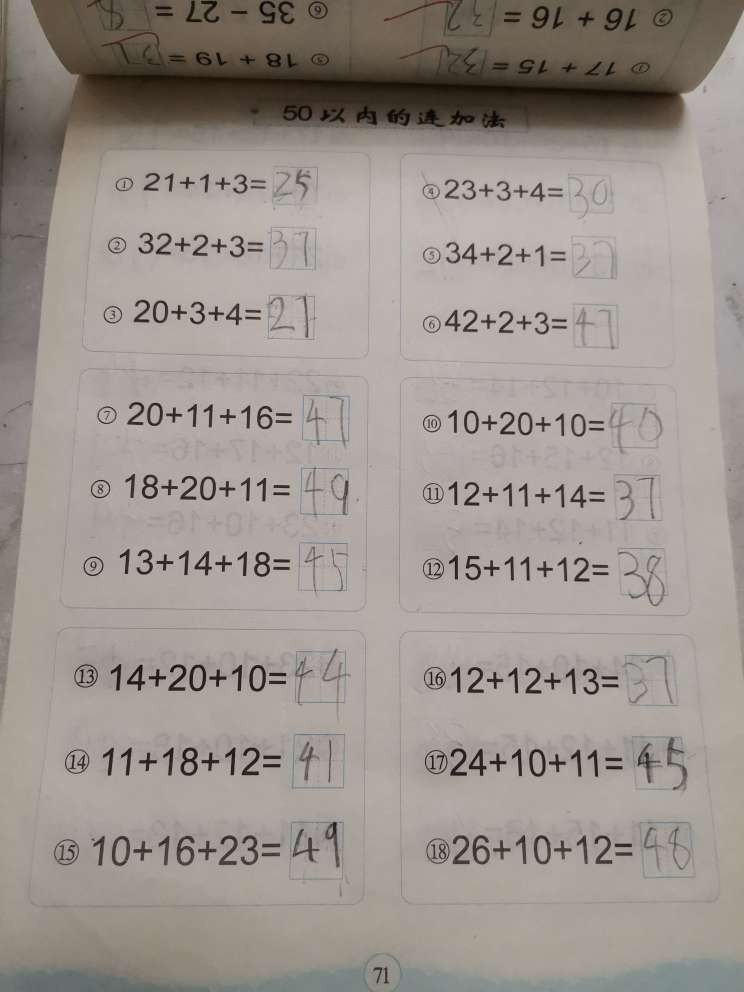 ⑥ 35 − 27 = 8 ② 16 + 16 = 32
⑤ 18 + 19 = 37 ① 17 + 15 = 32
50以内的连加法
① 21+1+3=25
② 32+2+3=37
③ 20+3+4=27
④ 23+3+4=30
⑤ 34+2+1=37
⑥ 42+2+3=47
⑦ 20+11+16=47
⑧ 18+20+11=49
⑨ 13+14+18=45
⑩ 10+20+10=40
⑪ 12+11+14=37
⑫ 15+11+12=38
⑬ 14+20+10=44
⑭ 11+18+12=41
⑮ 10+16+23=49
⑯ 12+12+13=37
⑰ 24+10+11=45
⑱ 26+10+12=48
71